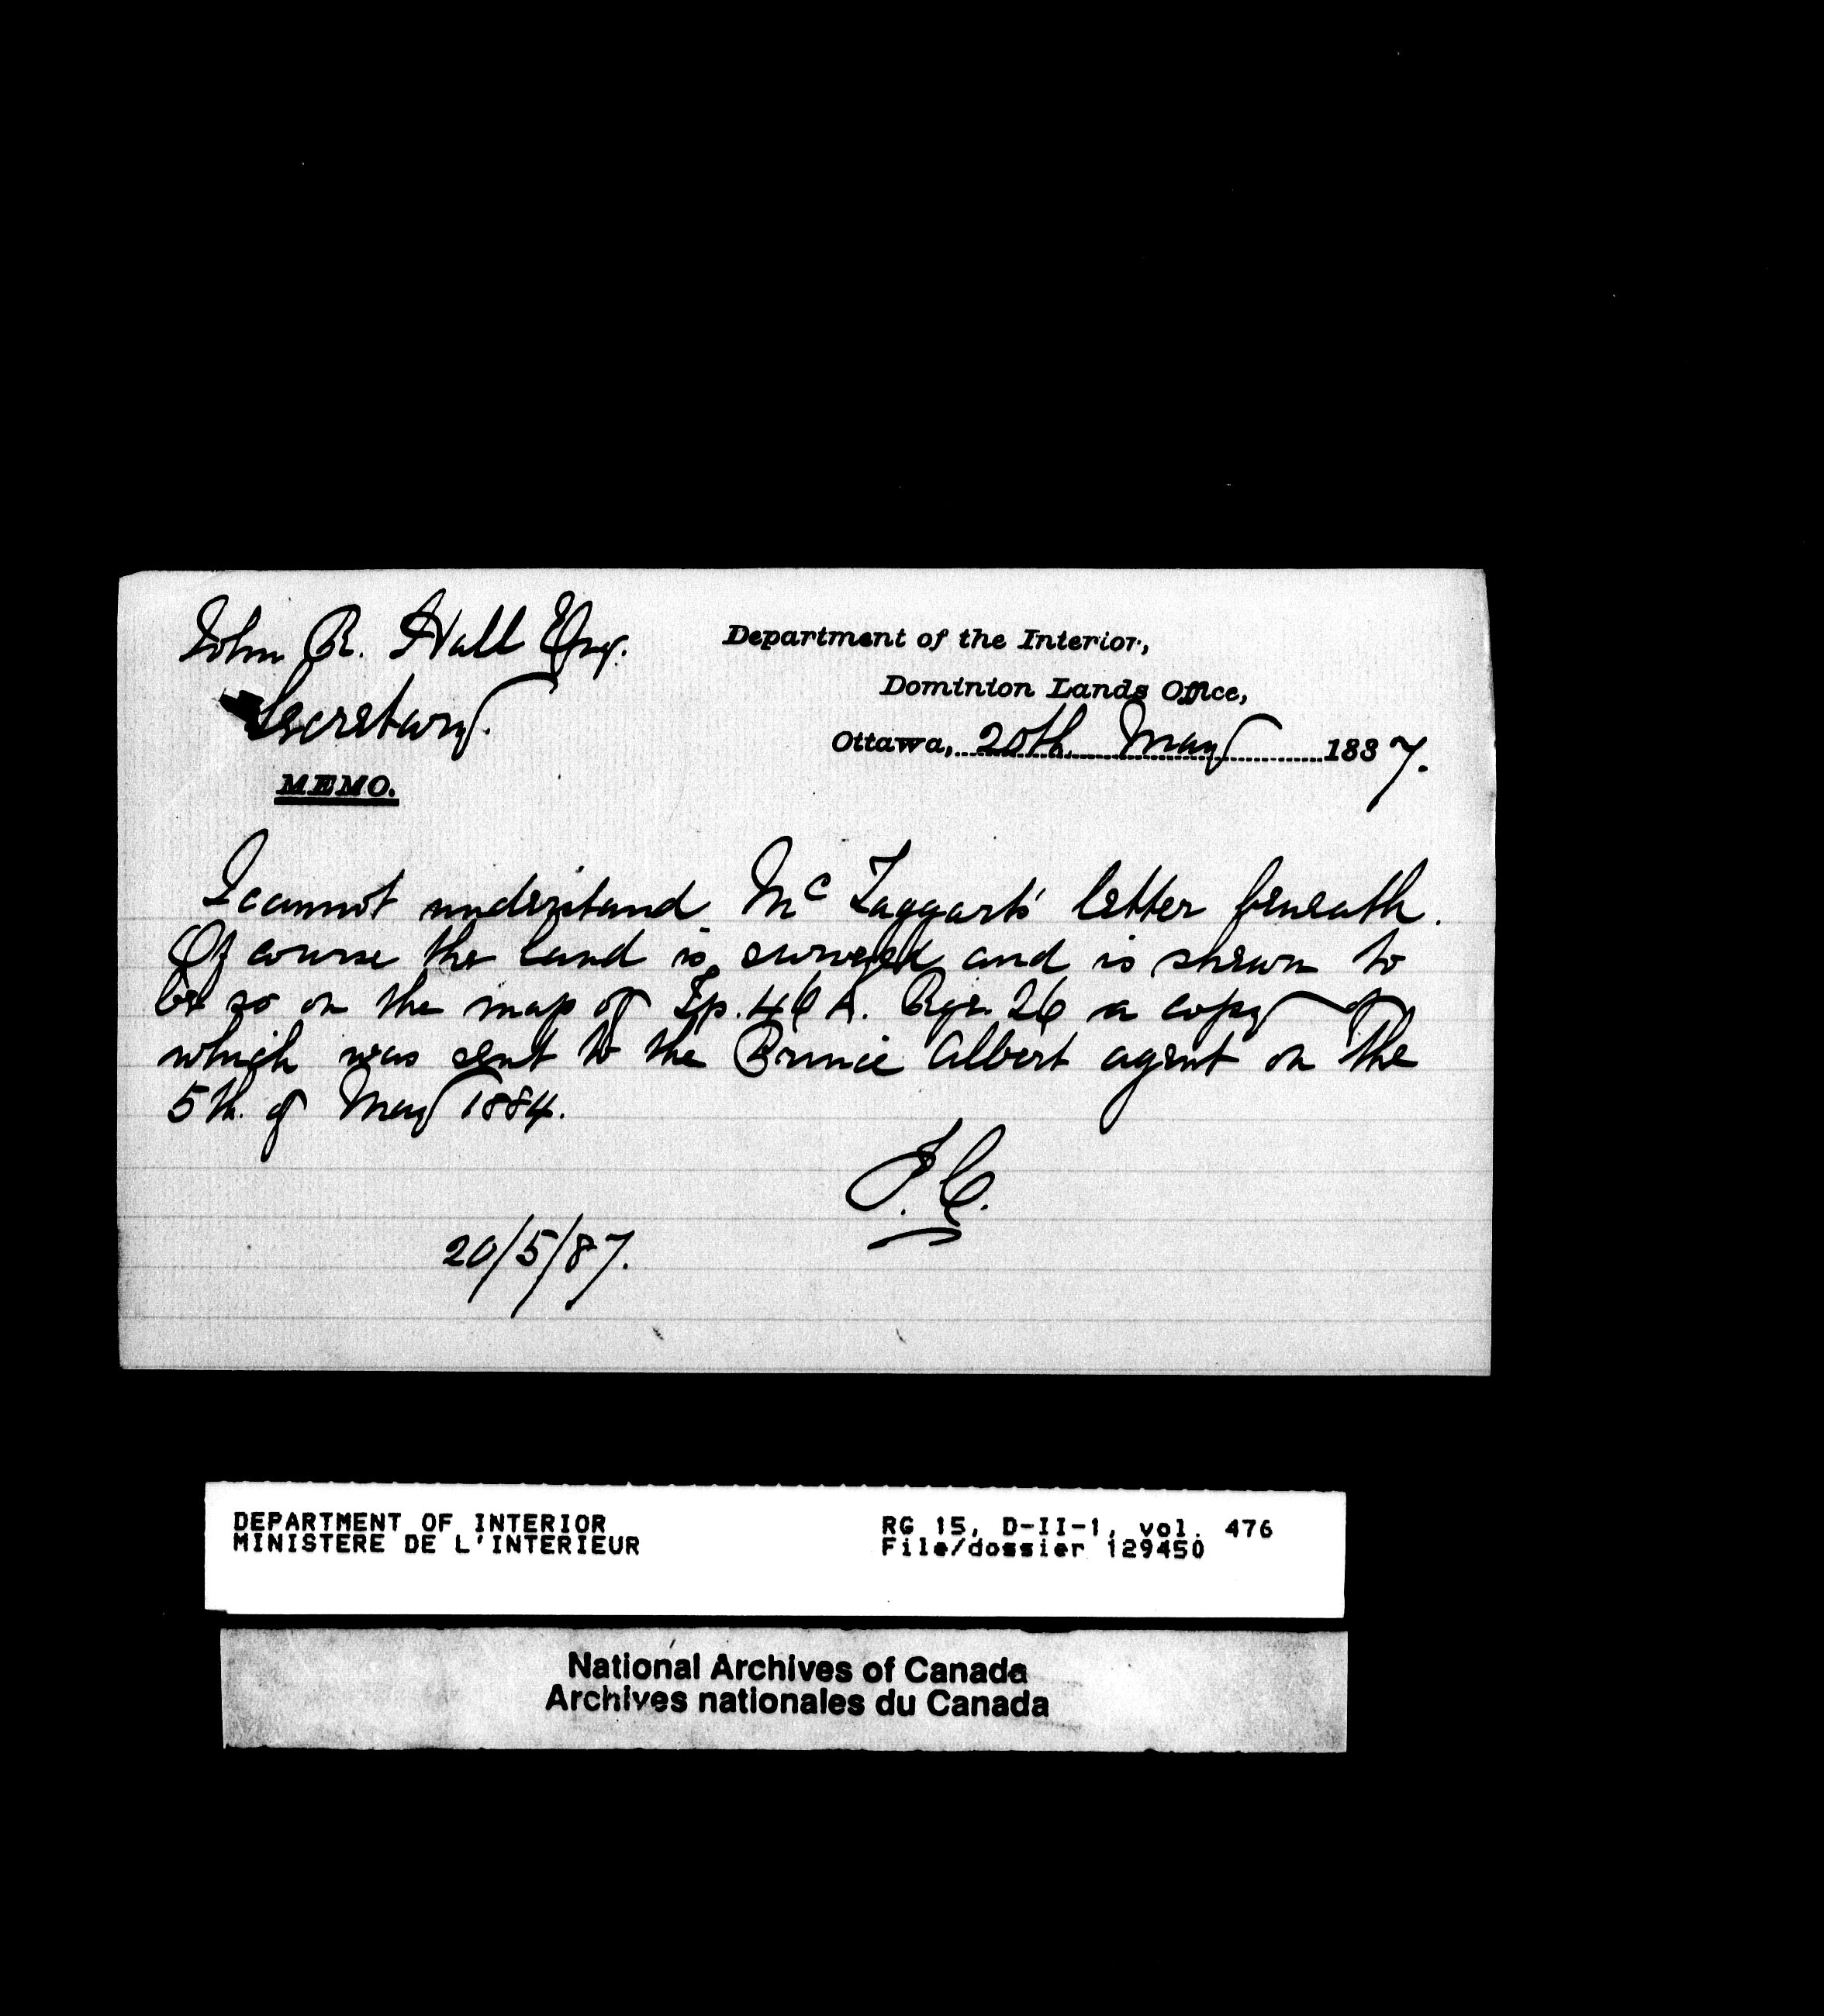 John R. Hall Esq.
Secretary.
MEMO.
Department of the Interior,
Dominion Lands Office,
Ottawa, 20th May 1887.
I cannot understand Mc Taggart's letter beneath.
Of course the land is surveyed and is shewn to
be so on the map of Tp. 46 A. Rge. 26 a copy of
which was sent to the Prince Albert agent on the
5th. of May 1884.
J.C.
20/5/87.
DEPARTMENT OF INTERIOR
MINISTERE DE L'INTERIEUR
RG 15, D-II-1, vol. 476
File/dossier 129450
National Archives of Canada
Archives nationales du Canada